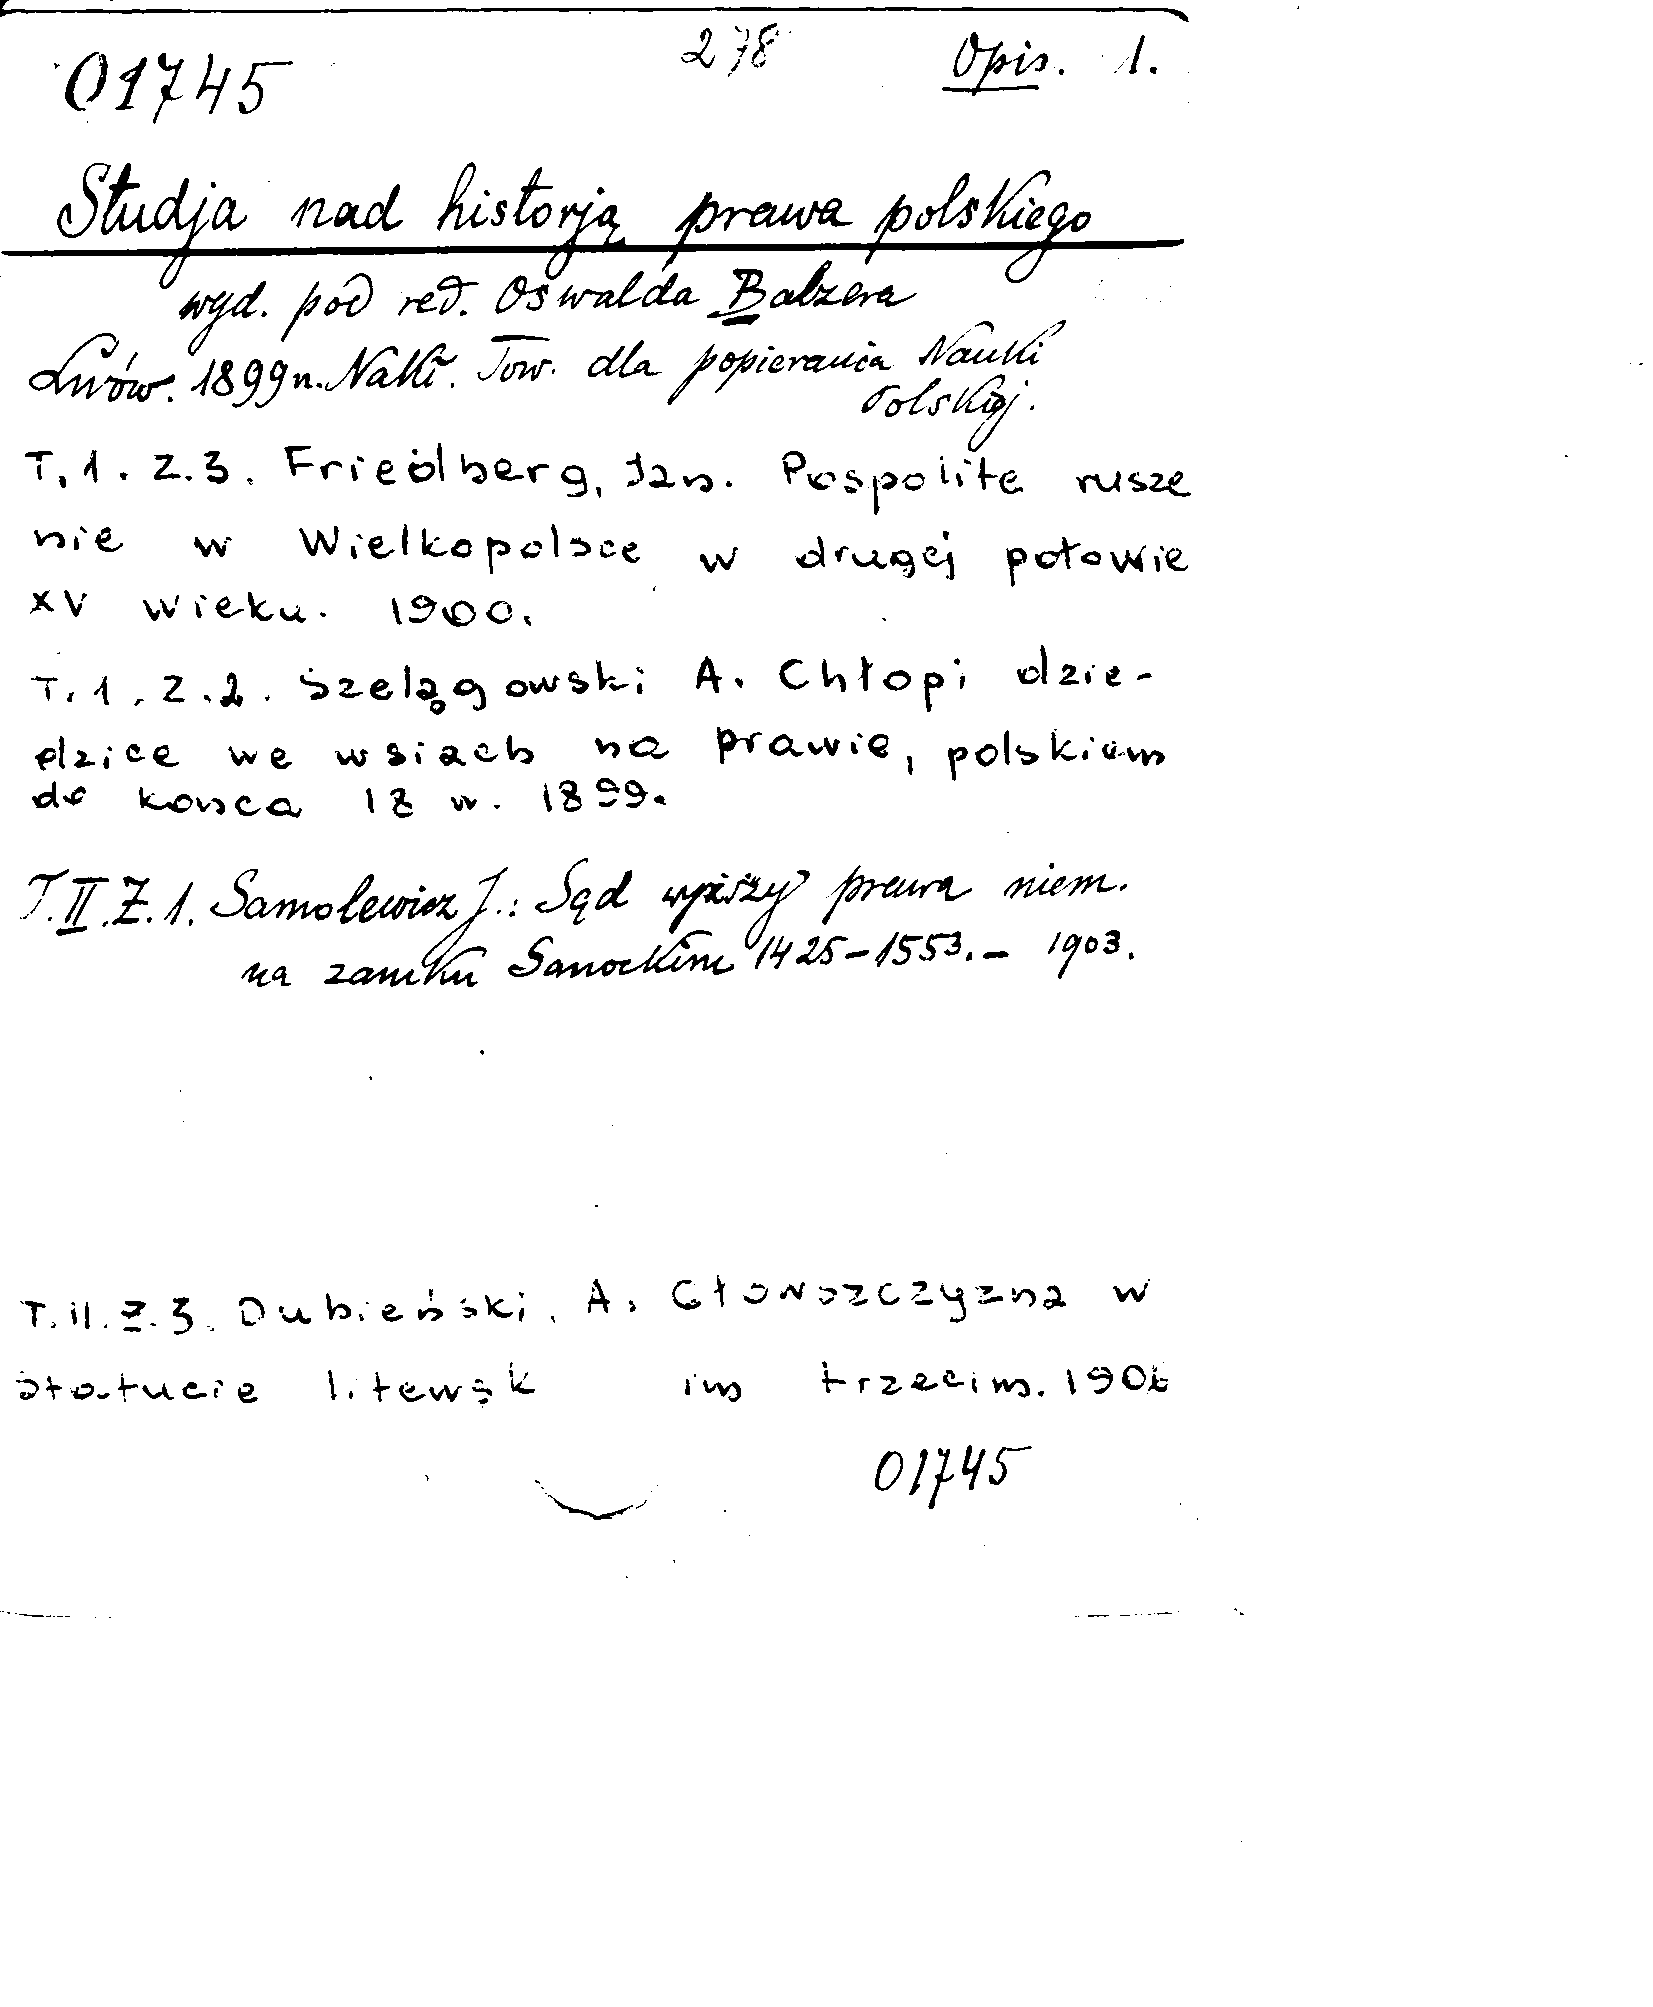 01745 278 Opis. 1.
Studja nad historją prawa polskiego
wyd. pod red. Oswalda Balzera
Lwów. 1899 n. Nakł. Tow. dla popierania Nauki
Polskiej.
T. 1. Z. 3. Friedberg, Jan. Pospolite rusze
nie w Wielkopolsce w drugej połowie
XV wieku. 1900.
T. 1. Z. 2. Szelągowski A. Chłopi dzie-
dzice we wsiach na prawie, polskiem
do końca 18 w. 1899.
T. II. Z. 1. Samolewicz J.: Sąd wyższy prawa niem.
na zamku Sanockim 1425-1553. - 1903.
T. II. Z. 3. Dubieński, A. Głowszczyzna w
statucie litewsk im trzecim.
01745